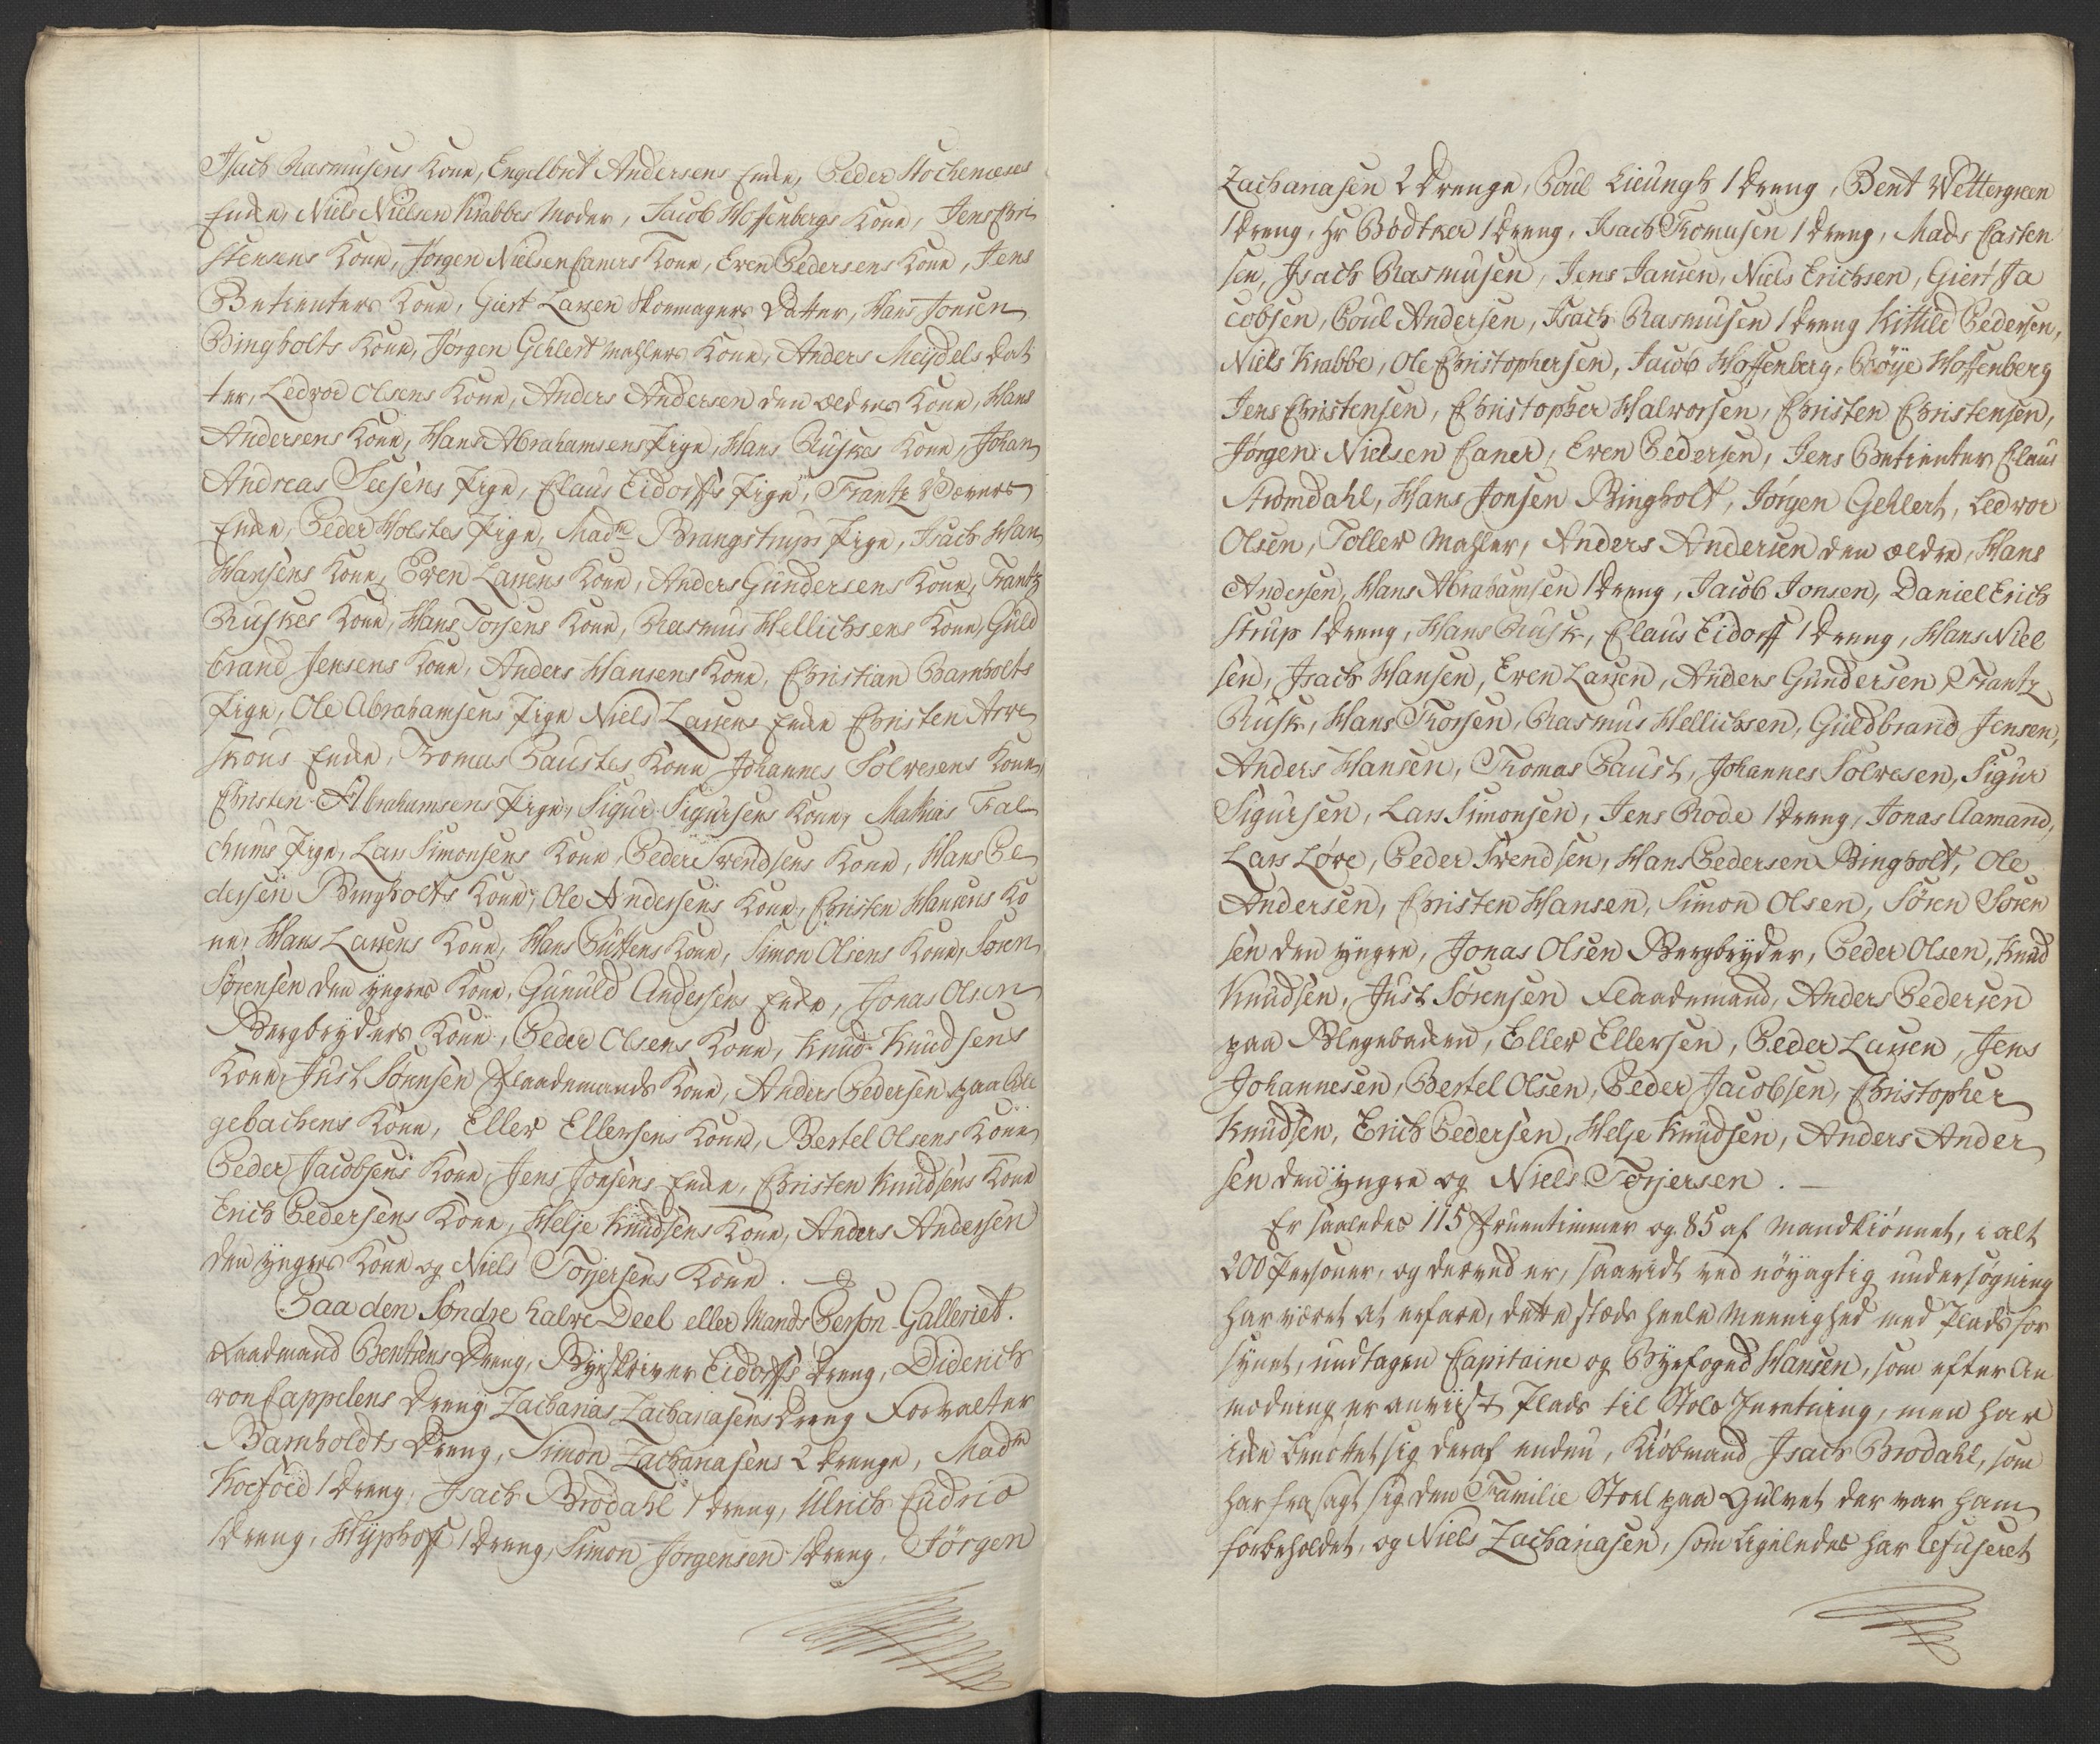 Isach Rasmusens Kone, Engelbret Andersens Enke, Peder Stochenæses
Enke, Niels Nielsen Krabbes Moder, Jacob Hoffenbergs Kone, Jens Chri
stensens Kone, Jørgen Nielsen Caners Kone, Even Pedersens Kone, Jens
Betienters Kone, Giert Larsen Skomagers Datter, Hans Jonsen
Bingholts Kone, Jørgen Gehlert Mahlers Kone, Anders Meydels Dat
ter, Ledvor Olsens Kone, Anders Andersen den ældres Kone, Hans
Andersens Kone, Hans Abrahamsens Pige, Hans Ruskes Kone, Johan
Andreas Seesens Pige, Claus Eidorffs Pige, Frantz Væwers
Enke, Peder Holstes Pige, Madme Brangstrups Pige, Isach Han
Hansens Kone, Even Larsens Kone, Anders Gundersens Kone, Frantz
Ruskes Kone, Hans Torsens Kone, Rasmus Hellichsens Kone, Guld
brand Jensens Kone, Anders Hansens Kone, Christian Barnholts
Pige, Ole Abrahamsens Pige Niels Larsens Enke Christen Arve
skous Enke, Tomas Paustes Kone Johannes Solvesens Kone,
Christen Abrahamsens Pige, Sigur Sigursens Kone, Mathias Fal
chums Pige, Lars Simonsens Kone, Peder Svendsens Kone, Hans Pe
dersen Bingholts Kone, Ole Andersens Kone, Christen Hansens Ko
ne, Hans Larsens Kone, Hans Püttens Kone, Simon Olsens Kone, Søren
Sørensen den yngres Kone, Gunuld Andersens Enke, Jonas Olsen
Bergbryders Kone, Peder Olsens Kone, Knud Knudsens
Kone, Just Sørensen Flaademands Kone, Anders Pedersen paa Ble
gebachens Kone, Eller Ellersens Kone, Bertel Olsens Kone
Peder Jacobsens Kone, Jens Jonsens Enke, Christen Knudsens Kone
Erich Pedersens Kone, Helje Knudsens Kone, Anders Andersen
den yngres Kone og Niels Torjersens Kone.
Paa den Søndre halve Deel eller Mands Person Galleriet.
Raadmand Bentzens Dreng, Byeskriver Eidorffs Dreng, Diderich
von Cappelens Dreng, Zacharias Zachariasens Dreng Forvalter
Barnholdts Dreng, Simon Zachariasens 2 Drenge, Madme
Koefoed 1 Dreng, Isach Brodahl 1 Dreng, Ulrich Cudrio
1 Dreng, Wyphoff 1 Dreng, Simon Jørgensen 1 Dreng, Jørgen
Zachariasen 2 Drenge, Poul Lieungh 1 Dreng, Bent Wettergreen
1 Dreng, Hr Bødtker 1 Dreng, Isach Thomasen 1 Dreng, Mads Casten
sen, Isach Rasmusen, Jens Jansen, Niels Erichsen, Giert Ja
cobsen, Poul Andersen, Isach Rasmusen 1 Dreng Kittild Pedersen,
Niels Krabbe, Ole Christophersen, Jacob Hoffenberg, Røye Hoffenberg
Jens Christensen, Christopher Halvorsen, Christen Christensen,
Jørgen Nielsen Caner, Even Pedersen, Jens Betienter Claus
Strømdahl, Hans Jonsen Bingholt, Jørgen Gehlert, Ledvor
Olsen, Toller Mahler, Anders Andersen den ældre, Hans
Andersen, Hans Abrahamsen 1 Dreng, Jacob Jonsen, Daniel Erich
strup 1 Dreng, Hans Rusk, Claus Eidorff 1 Dreng, Hans Niel
sen, Isach Hansen, Even Larsen, Anders Gundersen Frantz
Rusk, Hans Thorsen, Rasmus Hellichsen, Guldbrand Jensen,
Anders Hansen, Thomas Paust, Johannes Solvesen, Sigur
Sigursen, Lars Simonsen, Jens Rode 1 Dreng, Jonas Aamand,
Lars Løve, Peder Svendsen, Hans Pedersen Bingholt, Ole
Andersen, Christen Hansen, Simon Olsen, Søren Søren
sen den yngre, Jonas Olsen Bergbryder, Peder Olsen, Knud
Knudsen, Just Sørensen Flaademand, Anders Pedersen
paa Blegebacken, Eller Ellersen, Peder Larsen, Jens
Johannesen, Bertel Olsen, Peder Jacobsen, Christopher
Knudsen, Erich Pedersen, Helje Knudsen, Anders Ander
sen den yngre og Niels Torjersen.
Er saaledes 115 Fruentimmer og 85 af Mandkiønnet, i alt
200 Personer, og derved er, saavidt ved nöyagtig undersögning
har været at erfare, dette stæds heele Meenighed med Plads for
synet, undtagen Capitaine og Byefoged Hansen, som efter An
modning er anviist Plads til Stole Inretning, men har
icke benøttet sig deraf endnu, Kiøbmand Isach Brodahl, som
har frasagt sig den Familie Stoel paa Gulvet der var ham
forbeholdet, og Niels Zachariasen, som ligeledes har refuseret